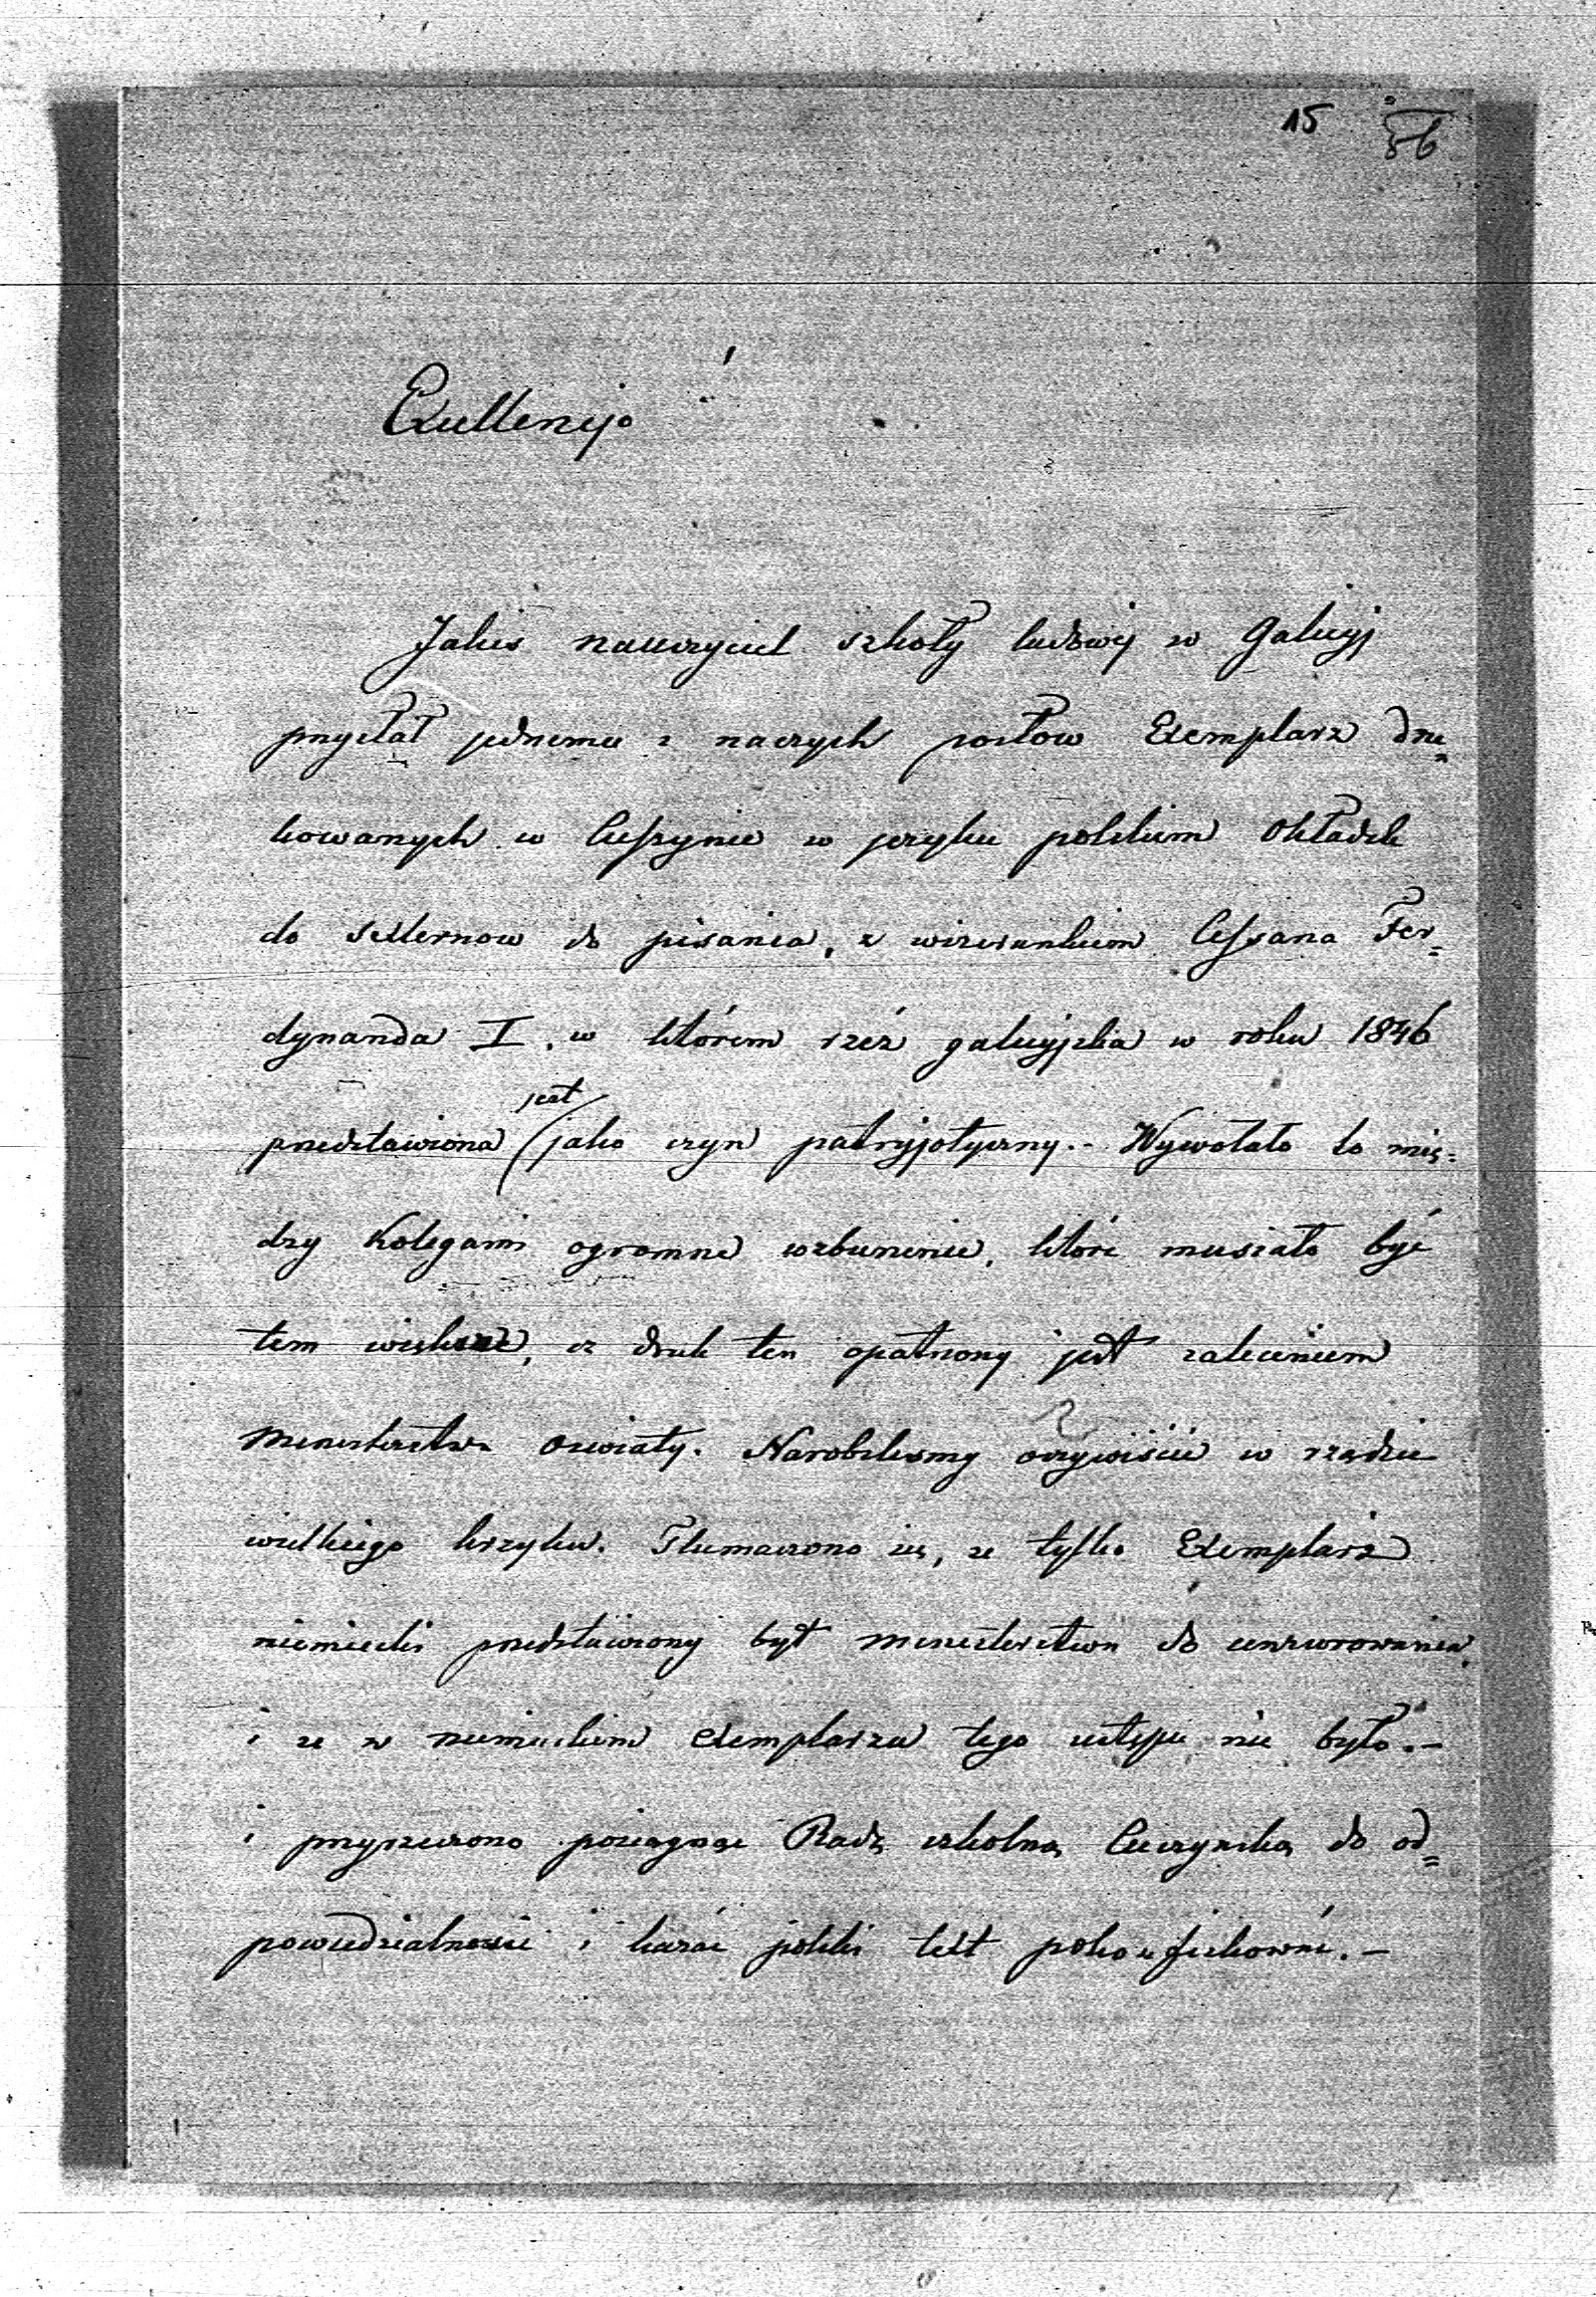 15 56
Excellencyjo
Jakiś nauczyciel szkoły ludowej w Galicyj
przysłał jednemu z naszych posłów Exemplarz dru„
kowanych w Cieszynie w języku polskiem okładek
do sexternow do pisania, z wizerunkiem Cesarza Fer=
dynanda I. w którem rzéź galicyjska w roku 1846
przedstawiona jest jako czyn patryjotyczny.- Wywołało to mię=
dzy Kolegami ogromne wzburzenie, które musiało być
tem większe, iż druk ten opatrzony jest zaleceniem
ministerstwa oswiaty. Narobilismy oczywiście w rządzie
wielkiego krzyku. Tłumaczono się, ze tylko Exemplarz
niemiecki przedstawiony był ministerstwu do cenzurowania,
i ze w niemieckiem exemplarzu tego ustępu nie było.-
i przyrzeczono pociągnąc Radę szkolną Cieszynską do od=
powiedzialnosci i kazać polski text pokonfiskować.-